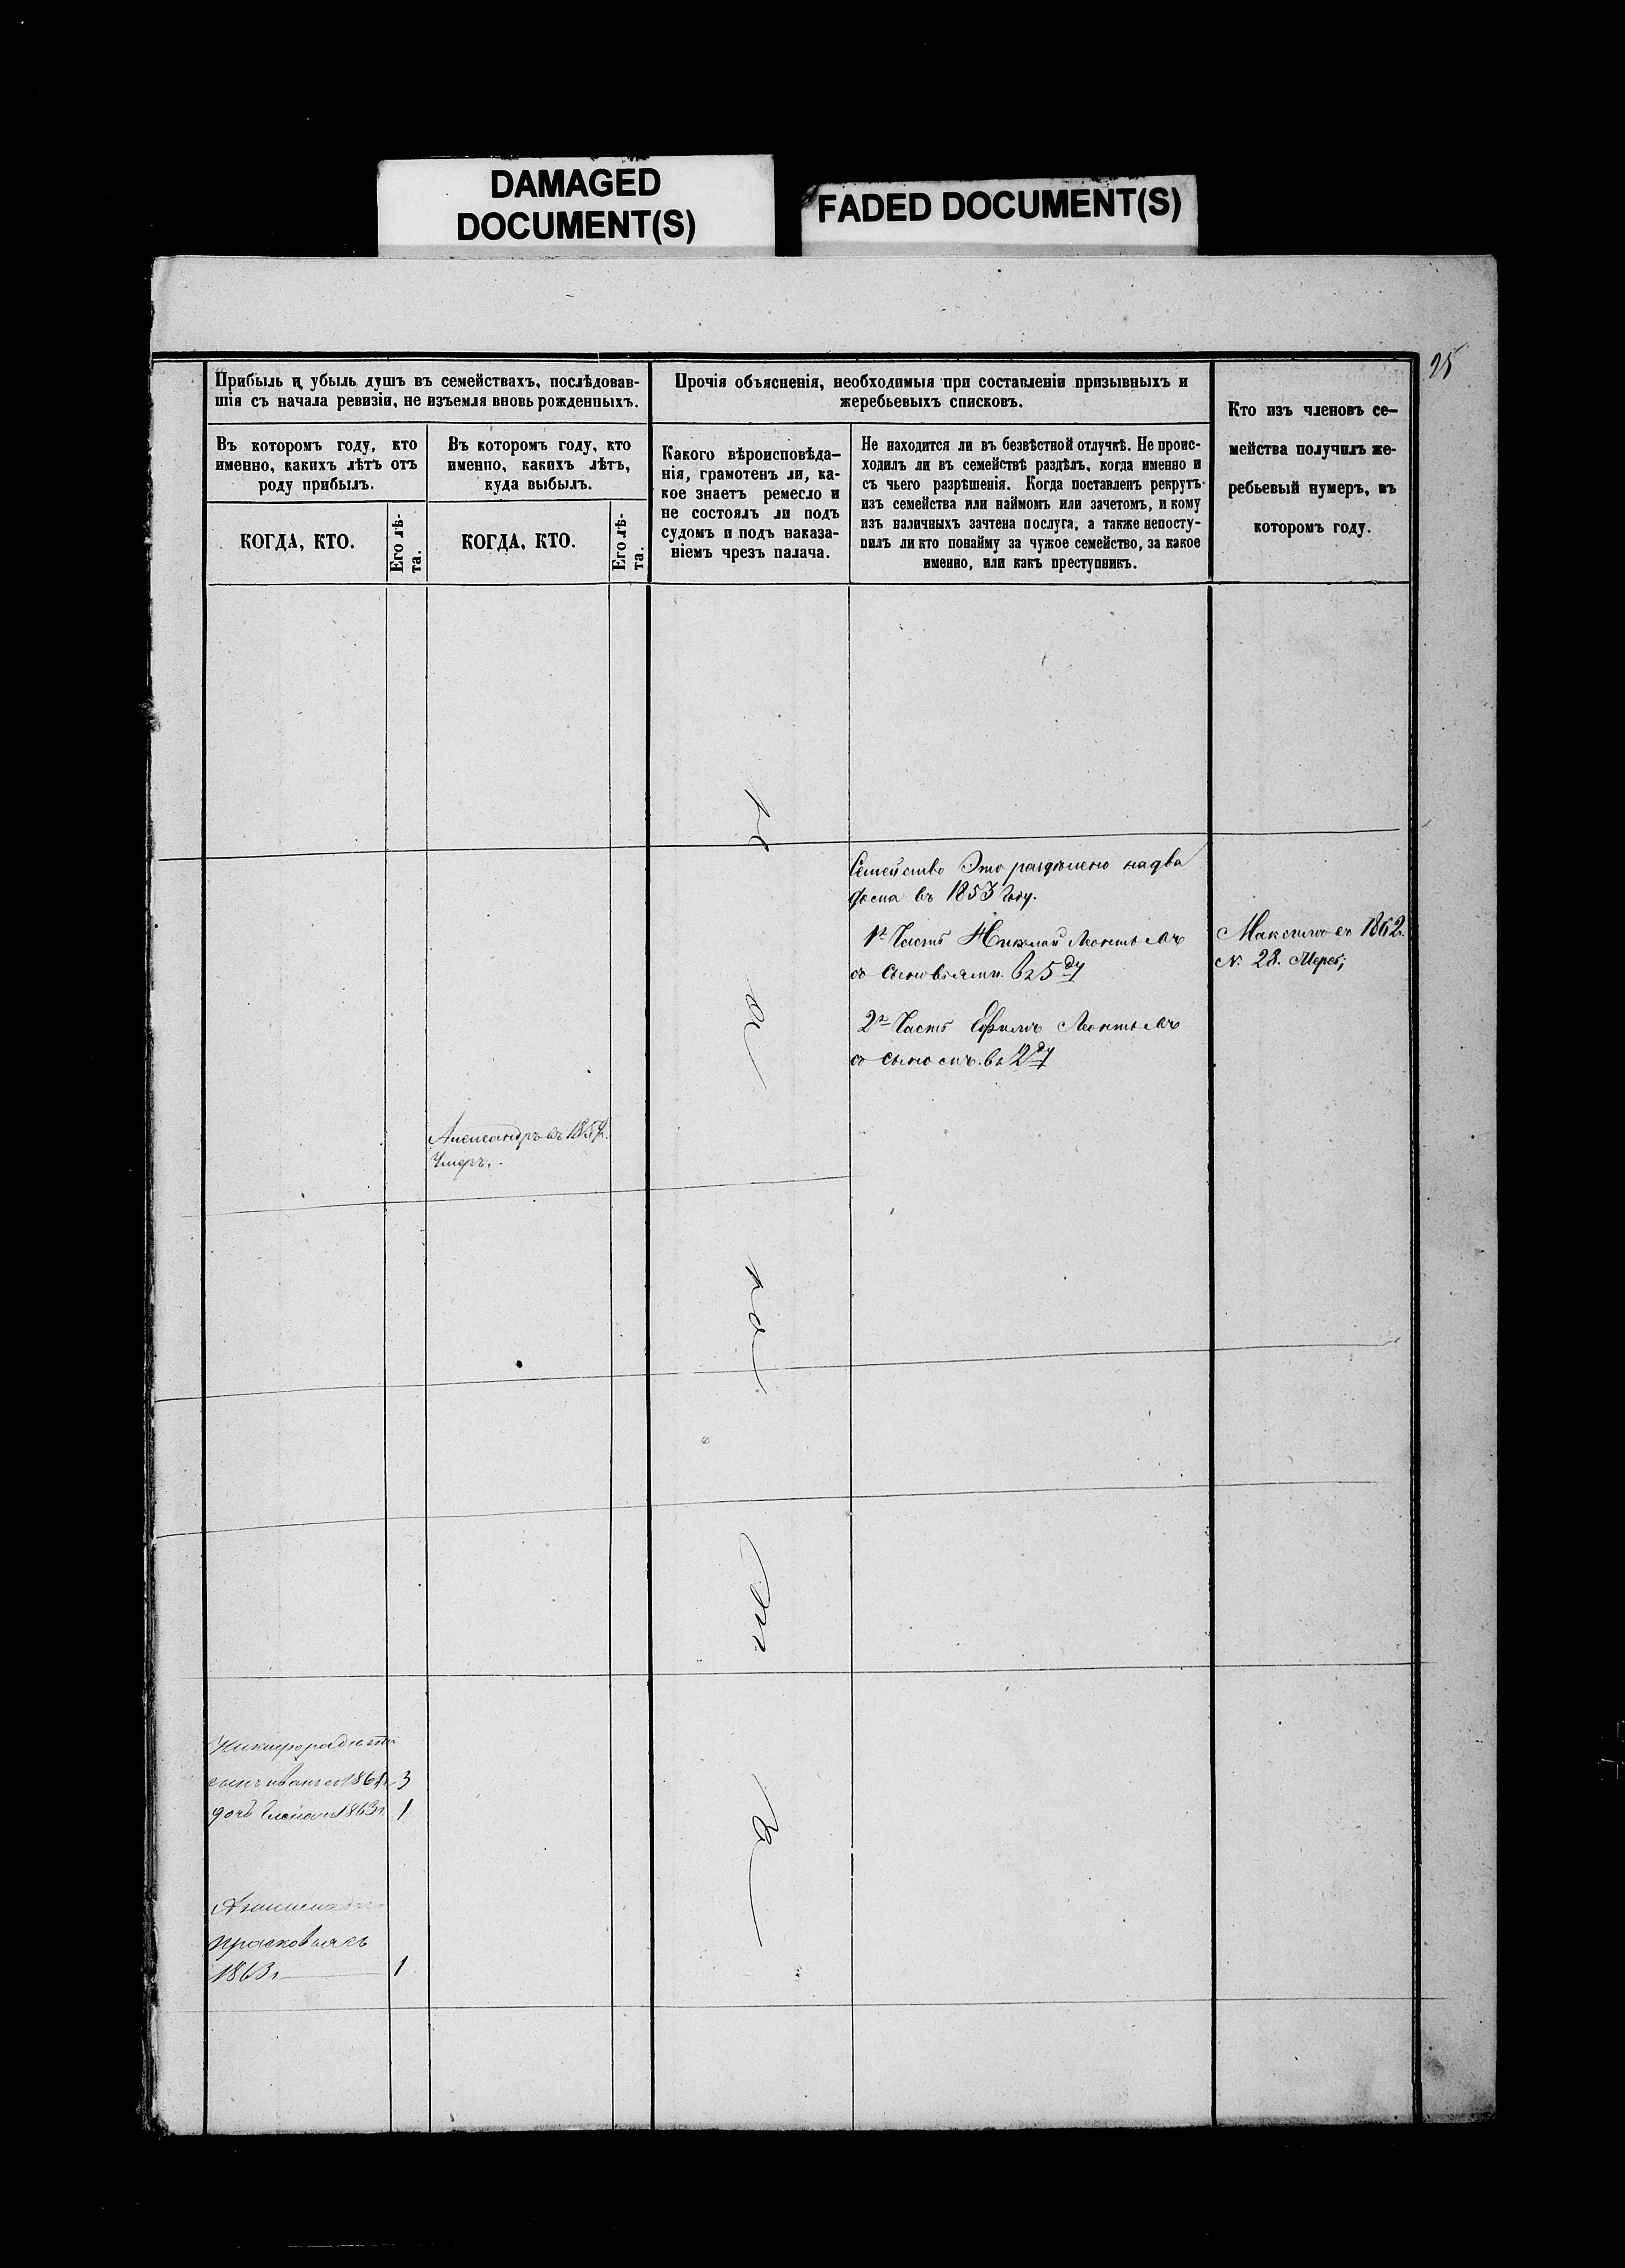 DAMAGED
DOCUMENT(S)
FADED DOCUMENT(S)
25
Прибыль и убыль душъ въ семействахъ, послѣдовав-
шія съ начала ревизіи, не изъемля вновь рожденныхъ.
Въ которомъ году, кто
именно, какихъ лѣтъ отъ
роду прибылъ.
КОГДА, КТО.
Его лѣ-
та.
Въ которомъ году, кто
именно, какихъ лѣтъ,
куда выбылъ.
КОГДА, КТО.
Его лѣ-
та.
Прочія объясненія, необходимыя при составленіи призывныхъ и
жеребьевыхъ списковъ.
Какого вѣроисповѣда-
нія, грамотенъ ли, ка-
кое знаетъ ремесло и
не состоялъ ли подъ
судомъ и подъ наказа-
ніемъ чрезъ палача.
Не находится ли въ безвѣстной отлучкѣ. Не проис-
ходилъ ли въ семействѣ раздѣлъ, когда именно и
съ чьего разрѣшенія. Когда поставленъ рекрутъ
изъ семейства или наймомъ или зачетомъ, и кому
изъ наличныхъ зачтена послуга, а также непосту-
пилъ ли кто понайму за чужое семейство, за какое
именно, или какъ преступникъ.
Кто изъ членовъ се-
мейства получилъ же-
ребьевый нумеръ, въ
которомъ году.
Семейство Это раздѣлено на два
въ 1853 году.
1я Часть Николай Леонтьевъ
съ сыновьями. въ 5 ду
2я Часть Ефимъ Леонтьевъ
съ сыномъ. въ 2 ду
Максимъ въ 1862.
№ 28.
Александръ въ 185
Умеръ.
сынъ иванъ 1861 3
дочь Елена 1863г. 1
прасковья въ
1863г 1